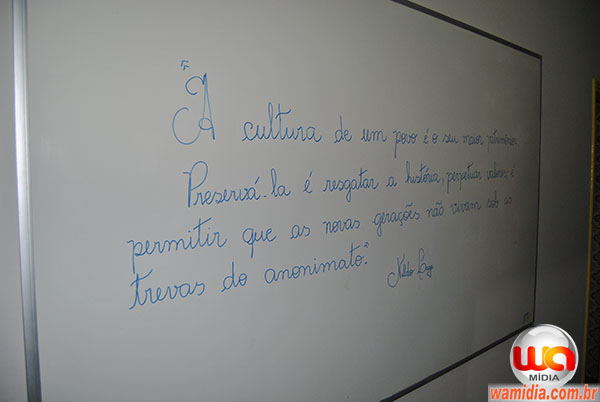 "A cultura de um povo é o seu maior patrimônio.
Preservá-la é resgatar a história, perpetuar valores, é
permitir que as novas gerações não vivam sob as
trevas do anonimato."
WA
MÍDIA
wamidia.com.br